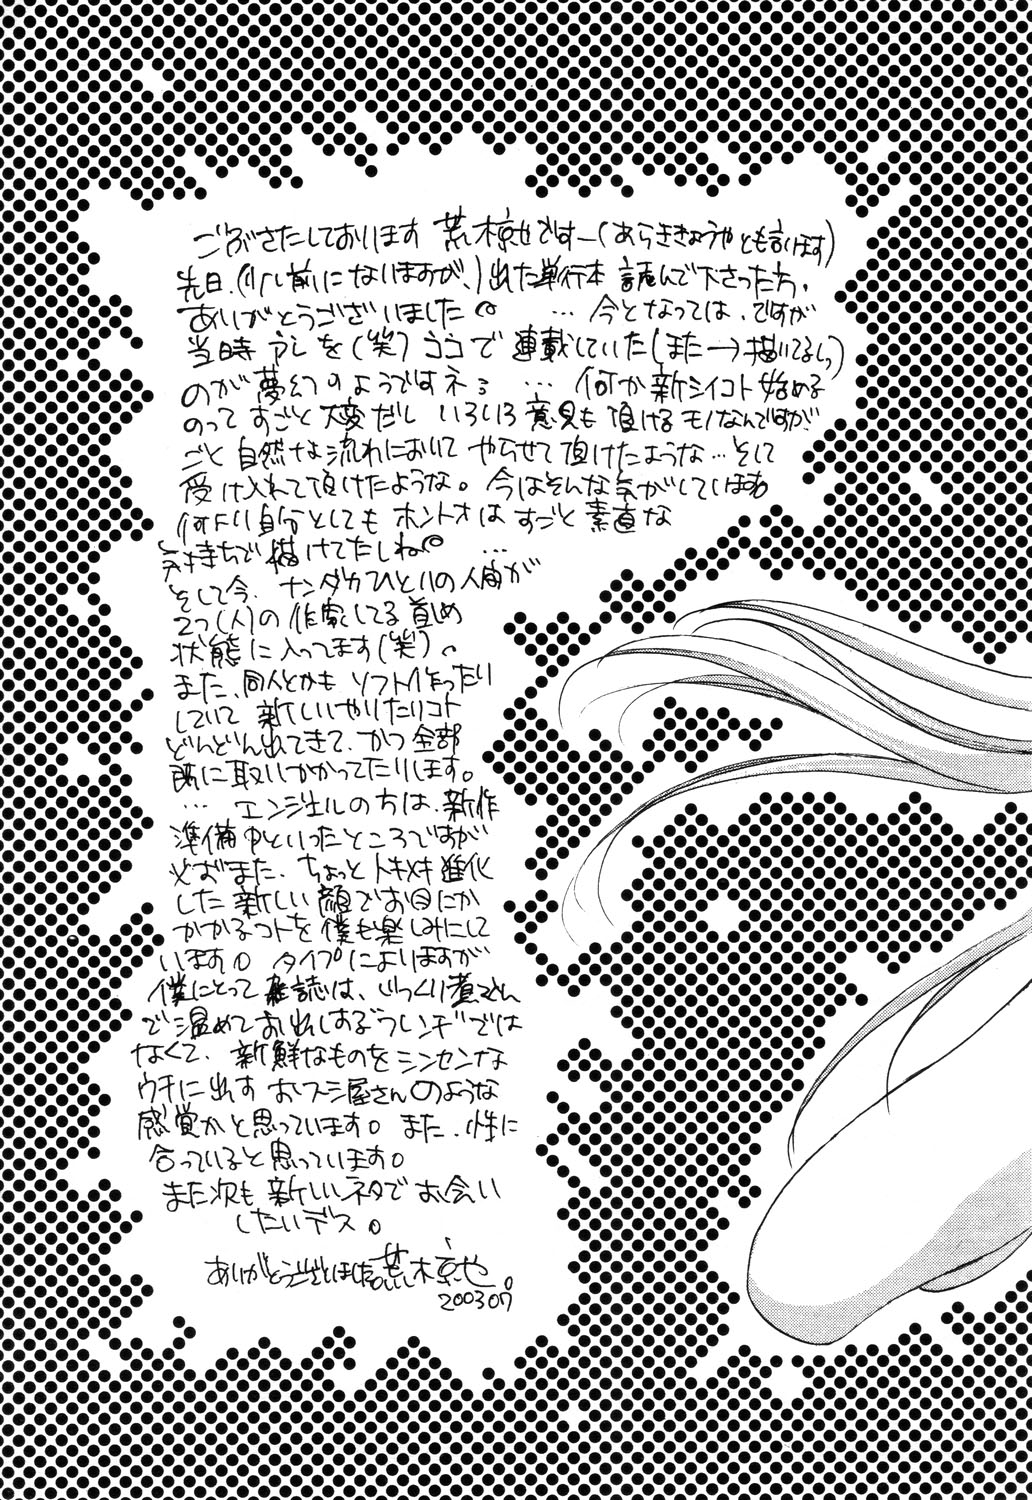 ごぶさたしております 荒木京也ですー(あらききょうやとも言います)
先日、(少し前になりますが、)出た単行本 読んで下さった方、
ありがとうございました。 … 今となっては、ですが
当時 コレを(笑)ココで 連載していた(また→描いてるし)
のが夢幻のようですネ … 何か新シイコト始める
のって すごと 大変だし いろいろ意見も 頂けるモノなんですが
ごと 自然な流れにおいて やらせて頂けたような…そして
受け入れて頂けたような。今はそんな気がしていまね
何より自分としても ホントオは すごと 素直な
気持ちで 描けてたしね …
そして今、ナンダカひとりの人間が
2つ(人)の作家してる 首め
状態に入ってます(笑)。
また、同人とかも ソフト作ったり
していて 新しいやりたいコト
どんどん出てきて、かつ全部
同に取りかかってたりします。
… エンジェルの方は、新作
準備中といったところですが
又おまた、ちょっと トキメキ進化
した新しい顔でお目にか
かかるコトを僕も楽しみにして
います。 タイプによりますが
僕にとって雑誌は、じっくり煮こん
で温めてお出しする ラレンチ"では
なくて、新鮮なものをシンセンな
ウチに出す おスシ屋さんのような
感覚かと思っています。また、性に
合っていると思っています。
また次も新しいネタで お会い
したいデス。
ありがとうございました 荒木京也。
200307